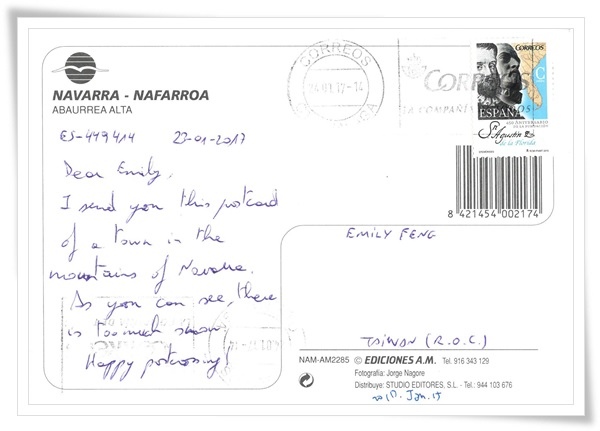 NAVARRA - NAFARROA
ABAURREA ALTA
ES-449414 23-01-2017
Dear Emily,
I send you this postcard
of a town in the
mountains of Navarra.
As you can see, there
is too much snow
Happy postcrossing!
CORREOS
CORREOS
LA COMPAÑÍA
CORREOS
ESPAÑA
Sn Agustín
de la Florida
8 421454 002174
EMILY FENG
TAIWAN (R.O.C.)
NAM-AM2285 © EDICIONES A.M. Tel. 916 343 129
Fotografía: Jorge Nagore
Distribuye: STUDIO EDITORES, S.L. - Tel.: 944 103 676